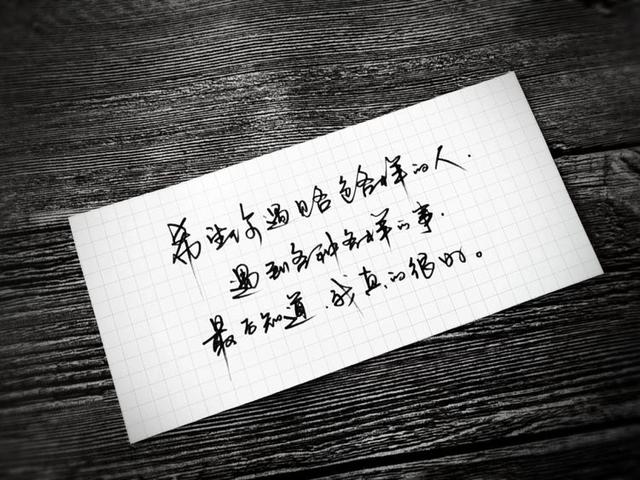 希望你遇见各色各样的人,
遇到各种各样的事,
最后知道,我真的很好。